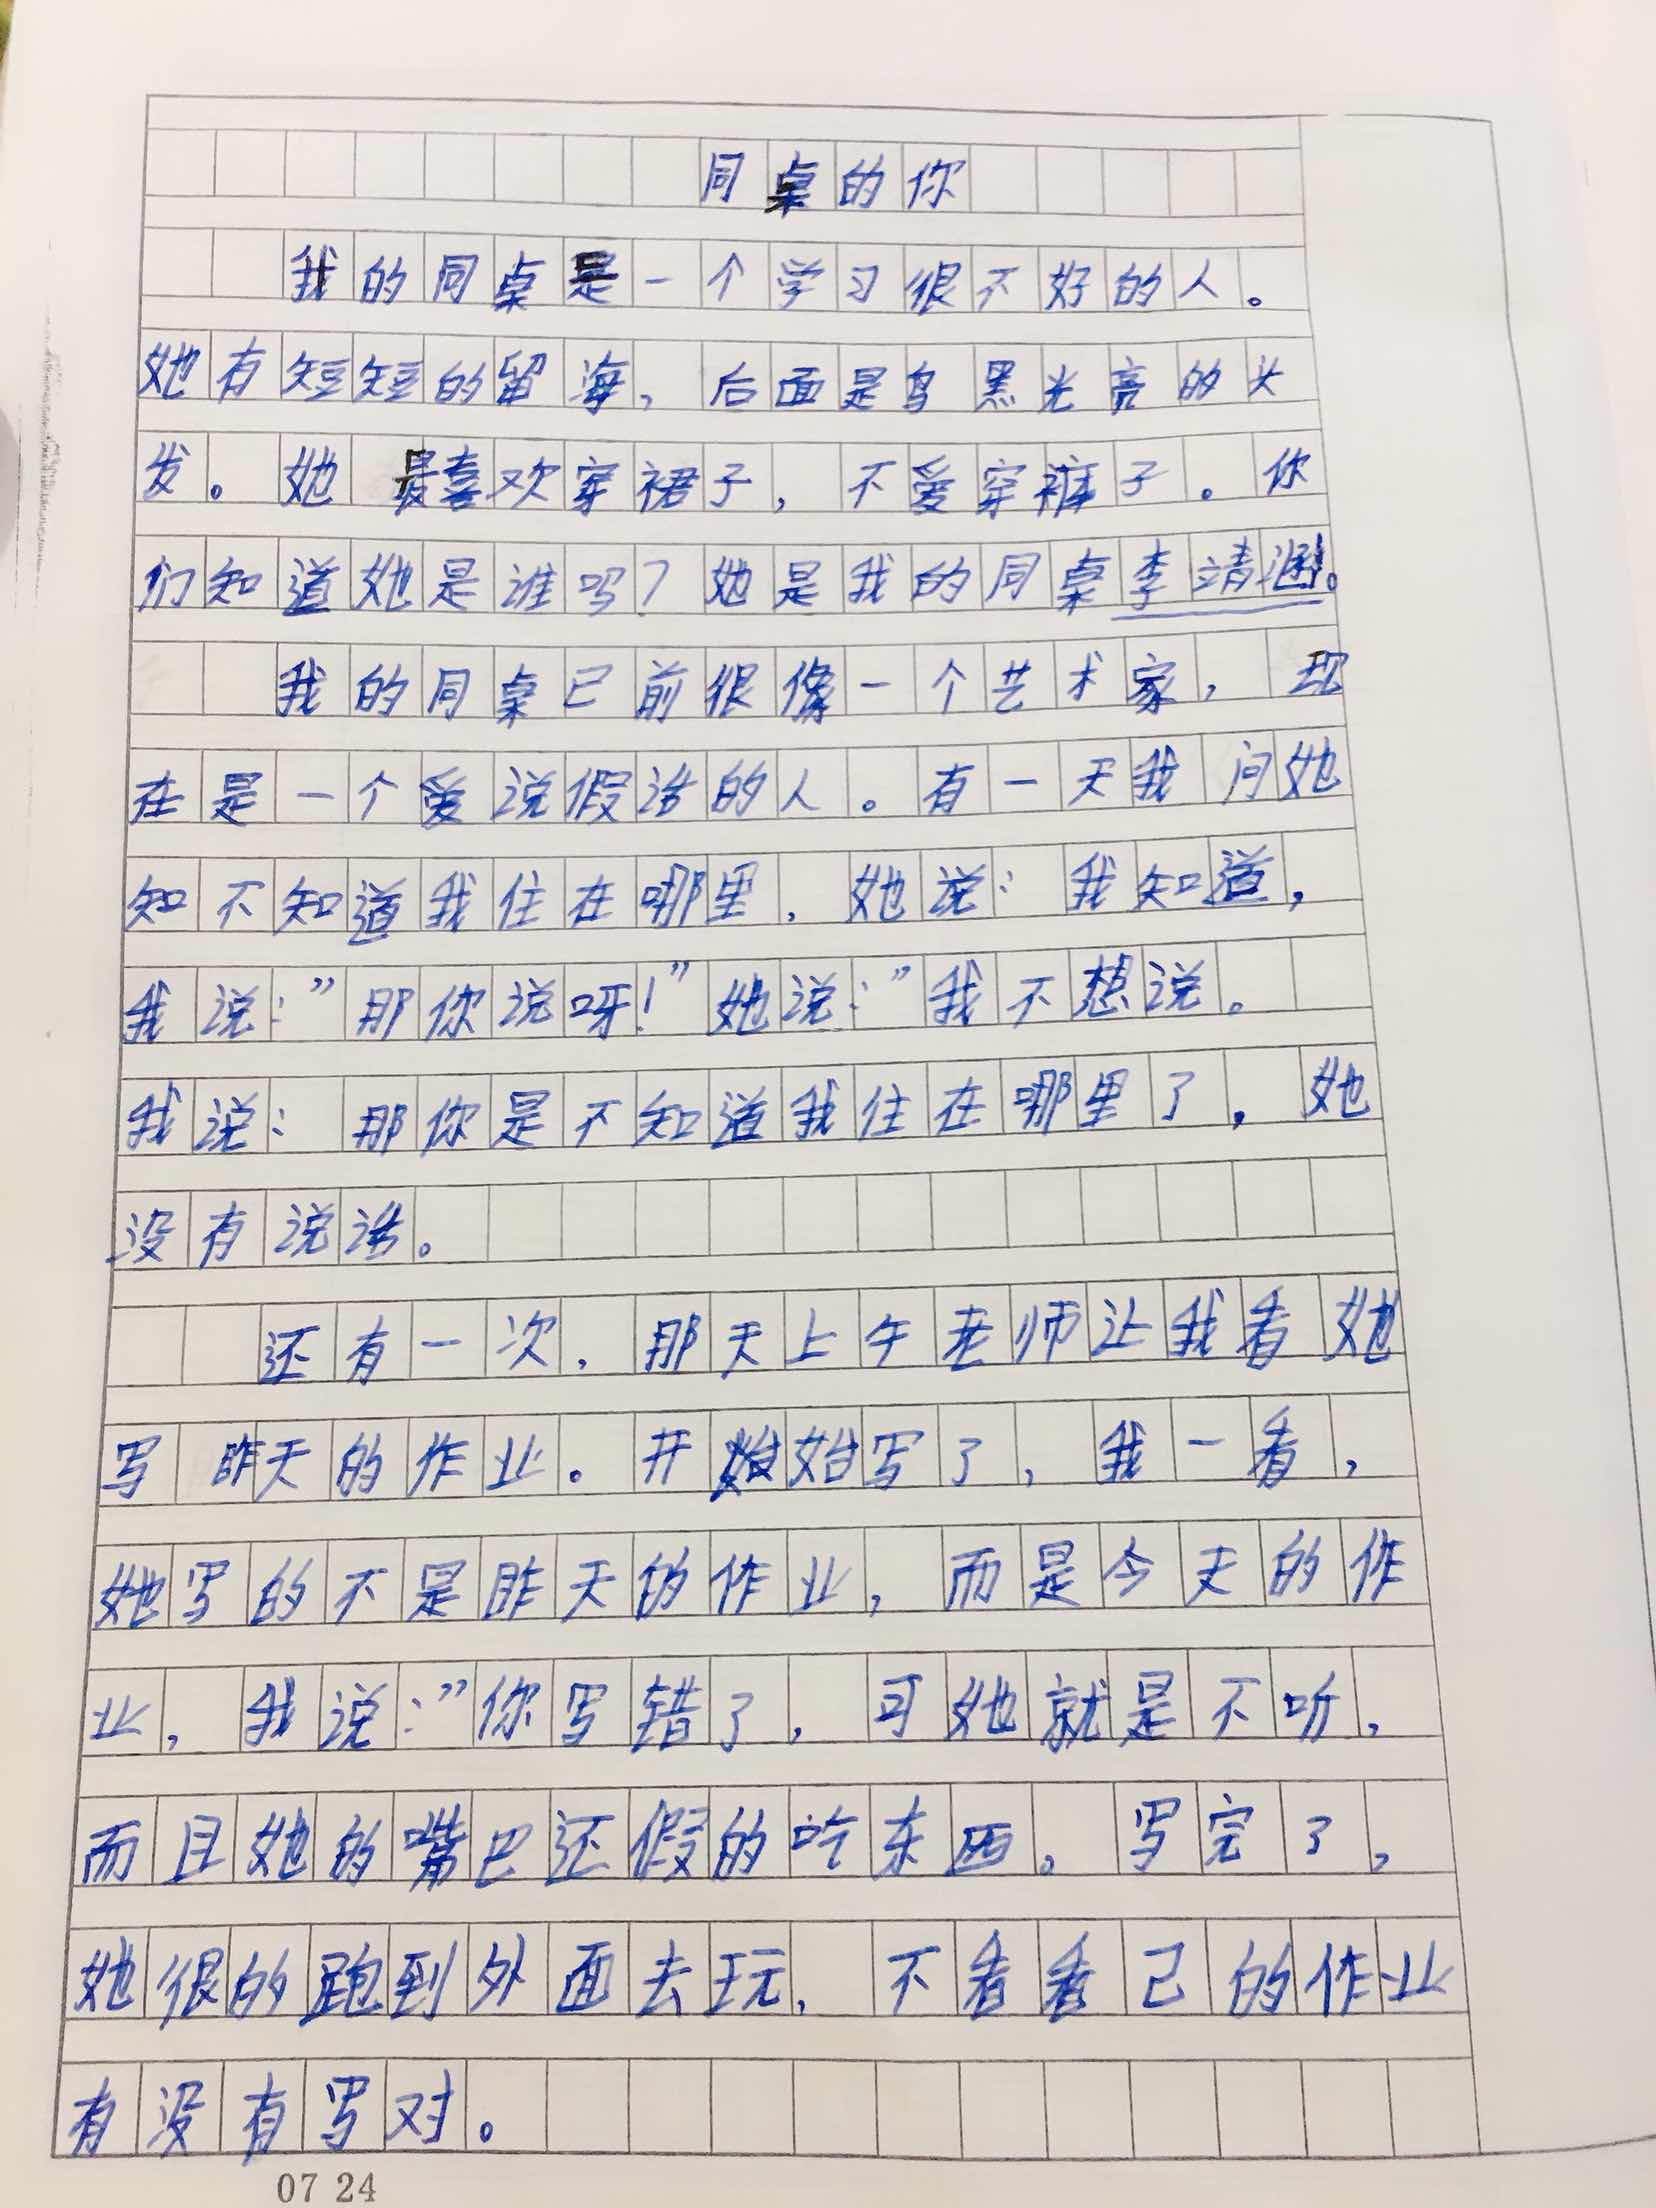 同桌的你
我的同桌是一个学习很不好的人。
她有短短的留海，后面是乌黑光亮的头
发。她最喜欢穿裙子，不爱穿裤子。你
们知道她是谁吗？她是我的同桌李靖涵。
我的同桌已前很像一个艺术家，现
在是一个爱说假话的人。有一天我问她
知不知道我住在哪里，她说：我知道，
我说：”那你说呀！”她说：”我不想说。
我说：那你是不知道我住在哪里了，她
没有说话。
还有一次，那天上午老师让我看她
写昨天的作业。开始写了，我一看，
她写的不是昨天的作业，而是今天的作
业，我说：”你写错了，可她就是不听，
而且她的嘴巴还假的吃东西。写完了，
她很的跑到外面去玩，不看看己的作业
有没有写对。
07 24